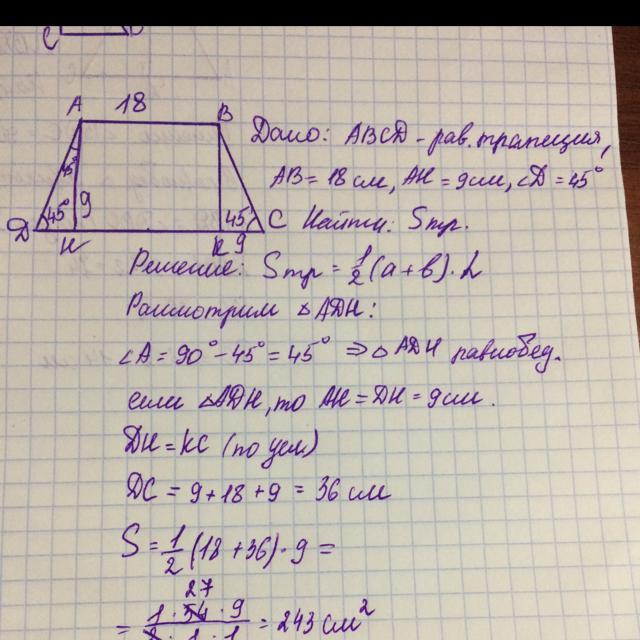 A 18 B
Дано: ABCD - рав. трапеция,
45° 9
AB = 18 см, AH = 9 см, ∠D = 45°
D 45° H K 9 45° C
Найти: Sтр.
Решение: Sтр = 1/2 (a + b) · h
Рассмотрим △ADH:
∠A = 90° - 45° = 45° ⇒ △ADH равнобед.
если △ADH, то AH = DH = 9 см.
DH = KC (по усл)
DC = 9 + 18 + 9 = 36 см
S = 1/2 (18 + 36) · 9 =
27
= 1 · 54 · 9 / 2 · 1 · 1 = 243 см²